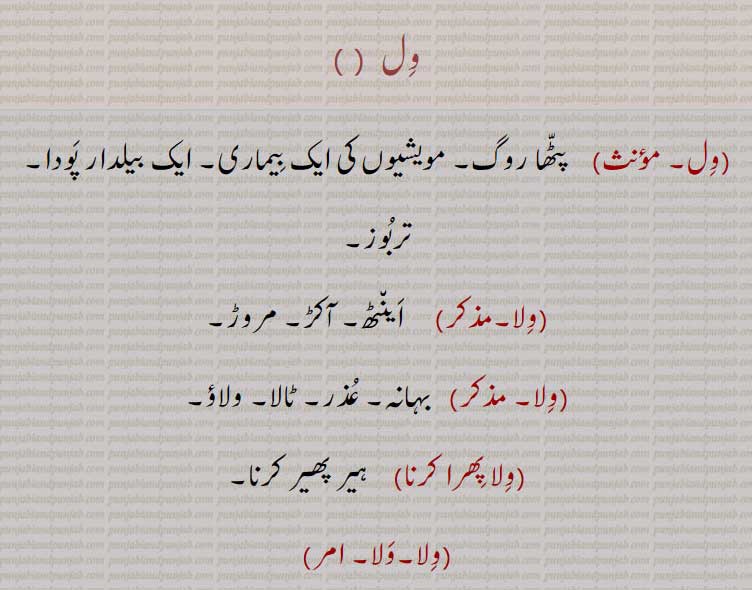 وِل ( )
(وِل۔ مؤنث) پٹّھا روگ۔ مویشیوں کی ایک بِیماری۔ ایک بیلدار پَودا۔
تربُوز۔
(وِلا۔مذکر) اَینّٹھ۔ آکڑ۔ مروڑ۔
(وِلا۔ مذکر) بہانہ۔ عُذر۔ ٹالا۔ ولاؤ۔
(وِلا پِھرا کرنا) ہیر پھیر کرنا۔
(وِلا۔وَلا۔ امر)